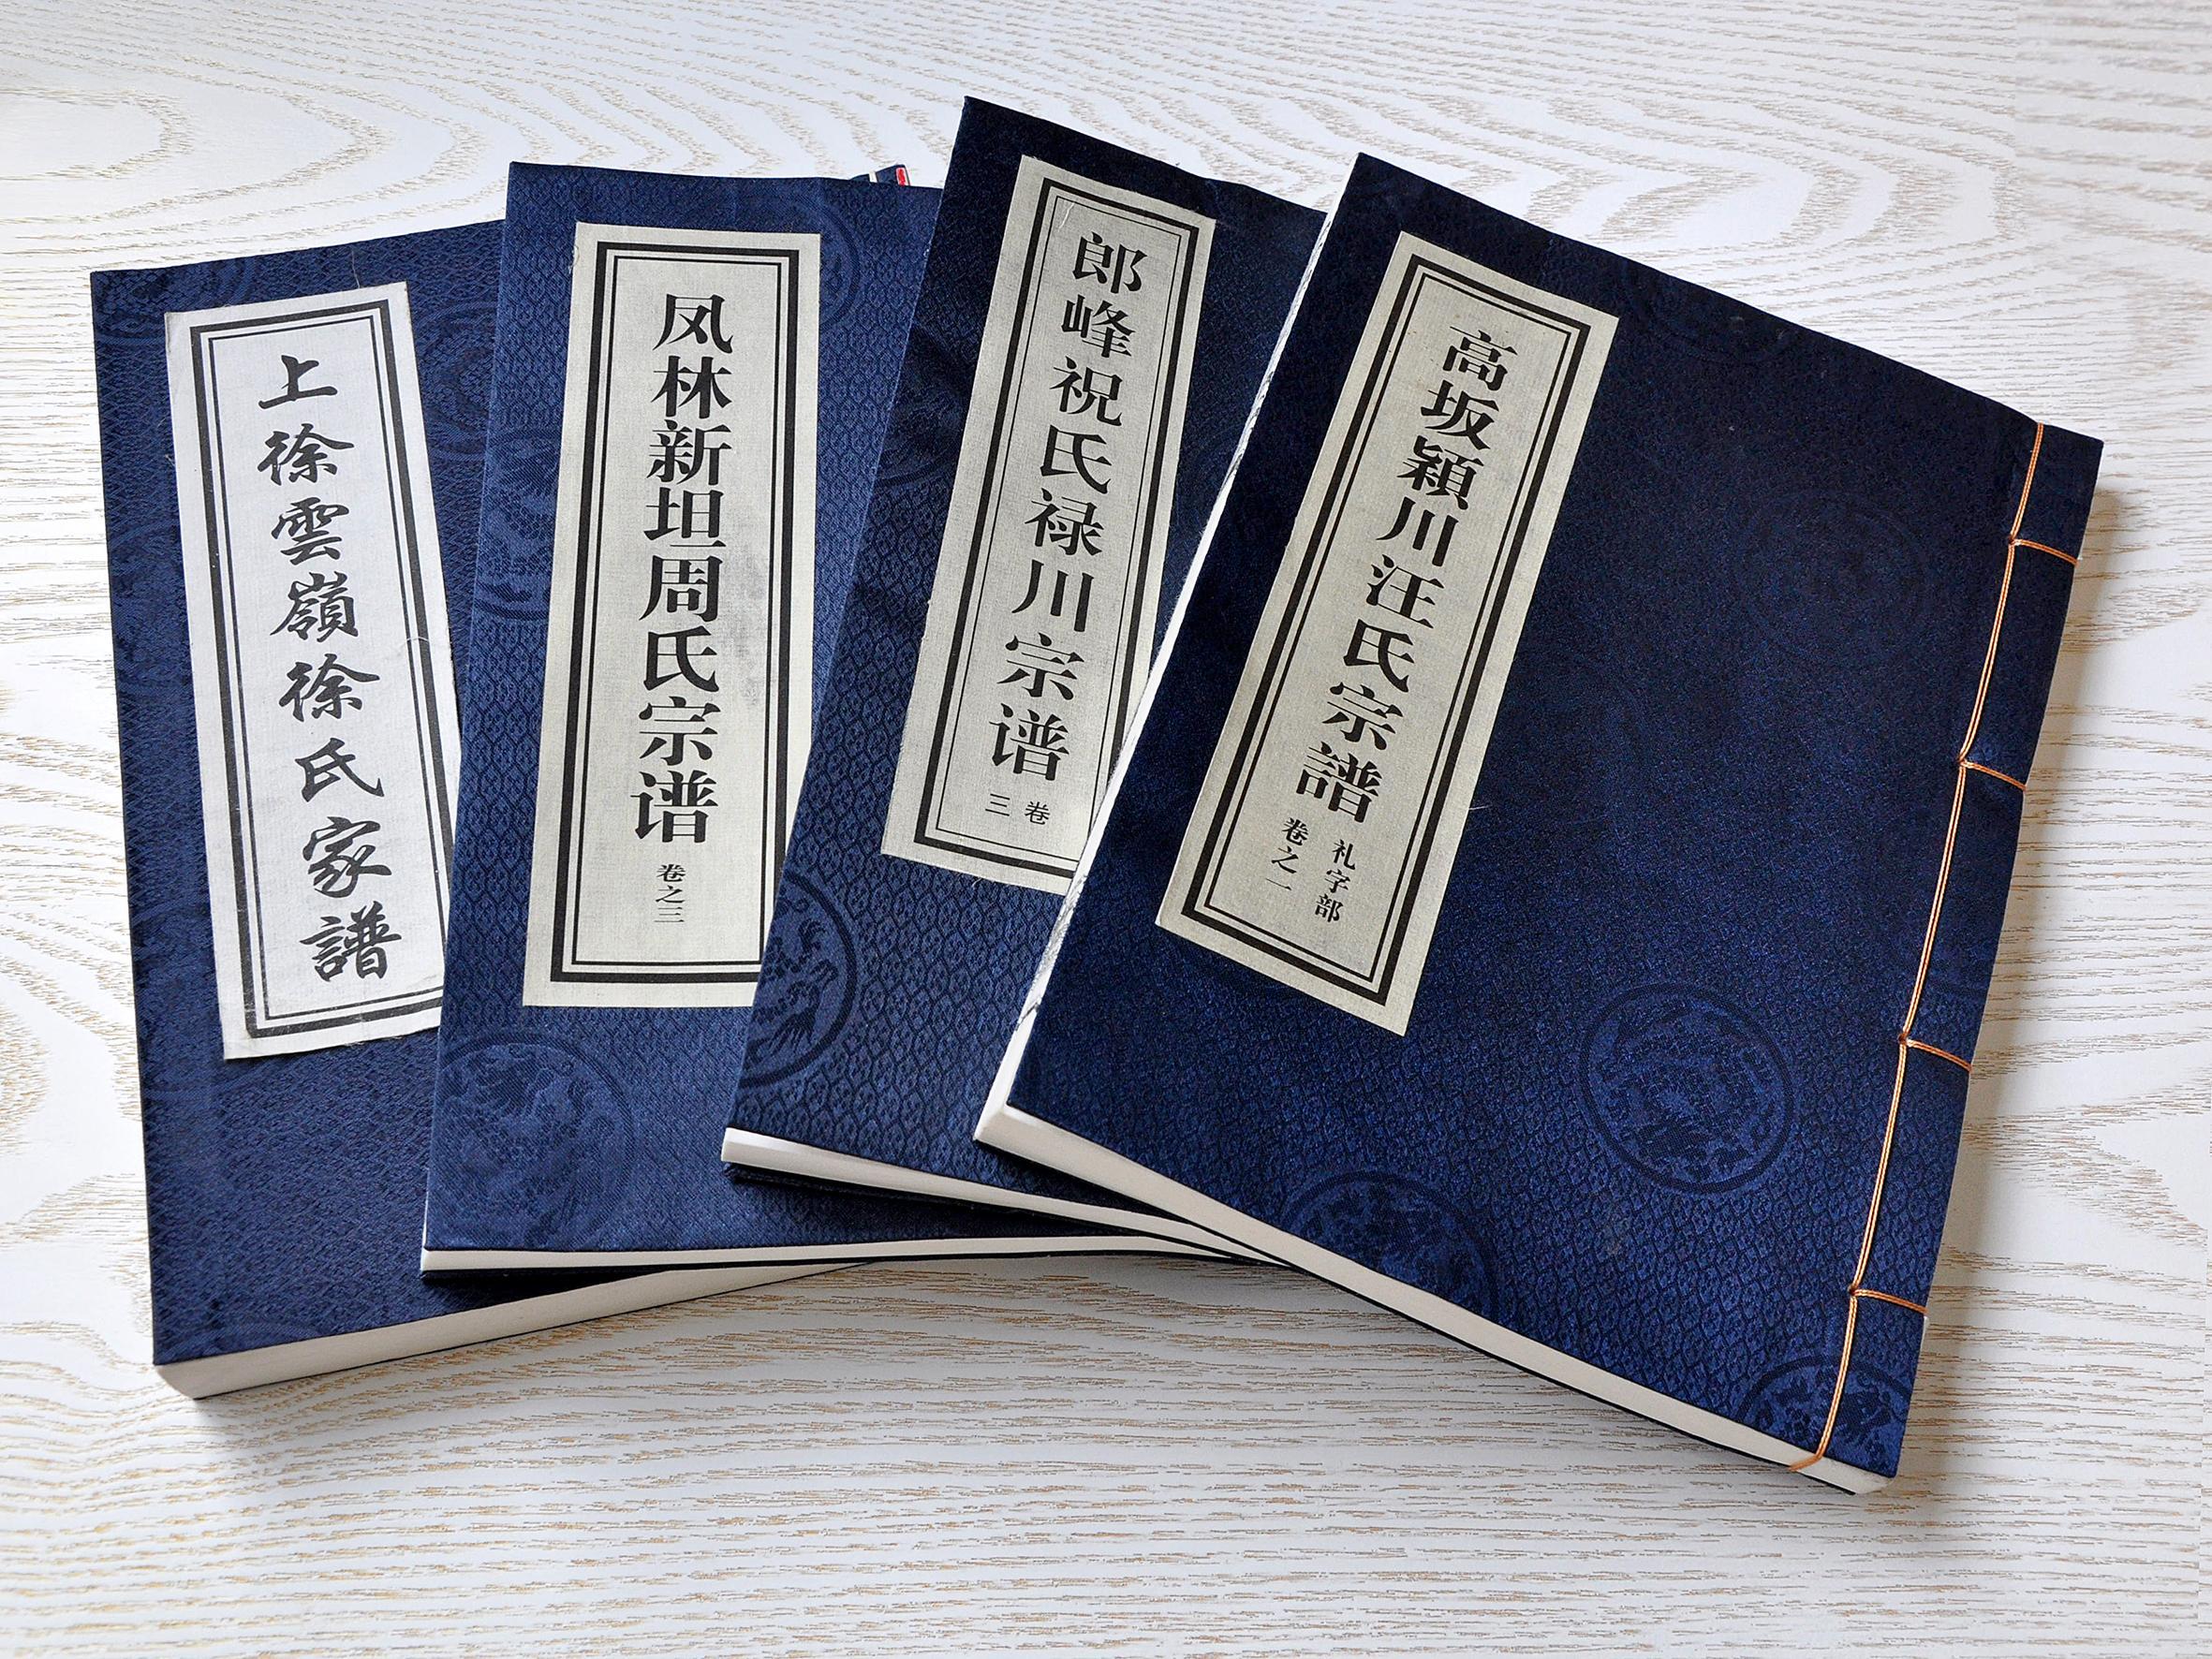 上徐雲嶺徐氏家譜
凤林新坦周氏宗谱
卷之三
郎峰祝氏禄川宗谱
卷三
高坂潁川汪氏宗譜
礼字部
卷之一